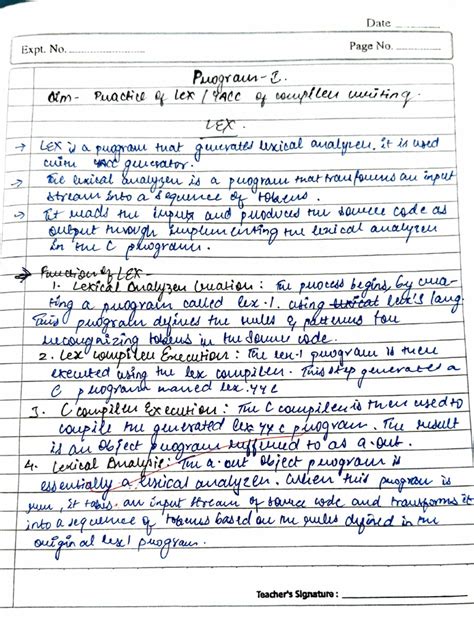 Date
Expt. No.
Page No.
Program-1.
Aim- Practice of LEX / YACC of compiler writing.
LEX.
→ LEX is a program that generates lexical analyzer. it is used
with YACC generator.
→ The lexical analyzer is a program that transforms an input
stream into a sequence of tokens.
→ It reads the inputs and produces the source code as
output through implementing the lexical analyzer
in the C program.
→ Function of LEX-
1. Lexical Analyzer Creation: The process begins by crea-
ting a program called lex.1. using lexical lex's lang.
This program defines the rules & patterns for
recognizing tokens in the source code.
2. Lex compiler Execution: The lex-1 program is then
executed using the lex compiler. This step generates a
C program named lex.yy.c
3. C compiler Execution: The C compiler is then used to
compile the generated lex.yy.c program. The result
is an object program reffered to as a.out.
4. Lexical Analysis: The a.out object program is
essentially a lexical analyzer. When this program is
run, it takes an input stream of source code and transforms it
into a sequence of tokens based on the rules defined in the
original lex1 program.
Teacher's Signature :